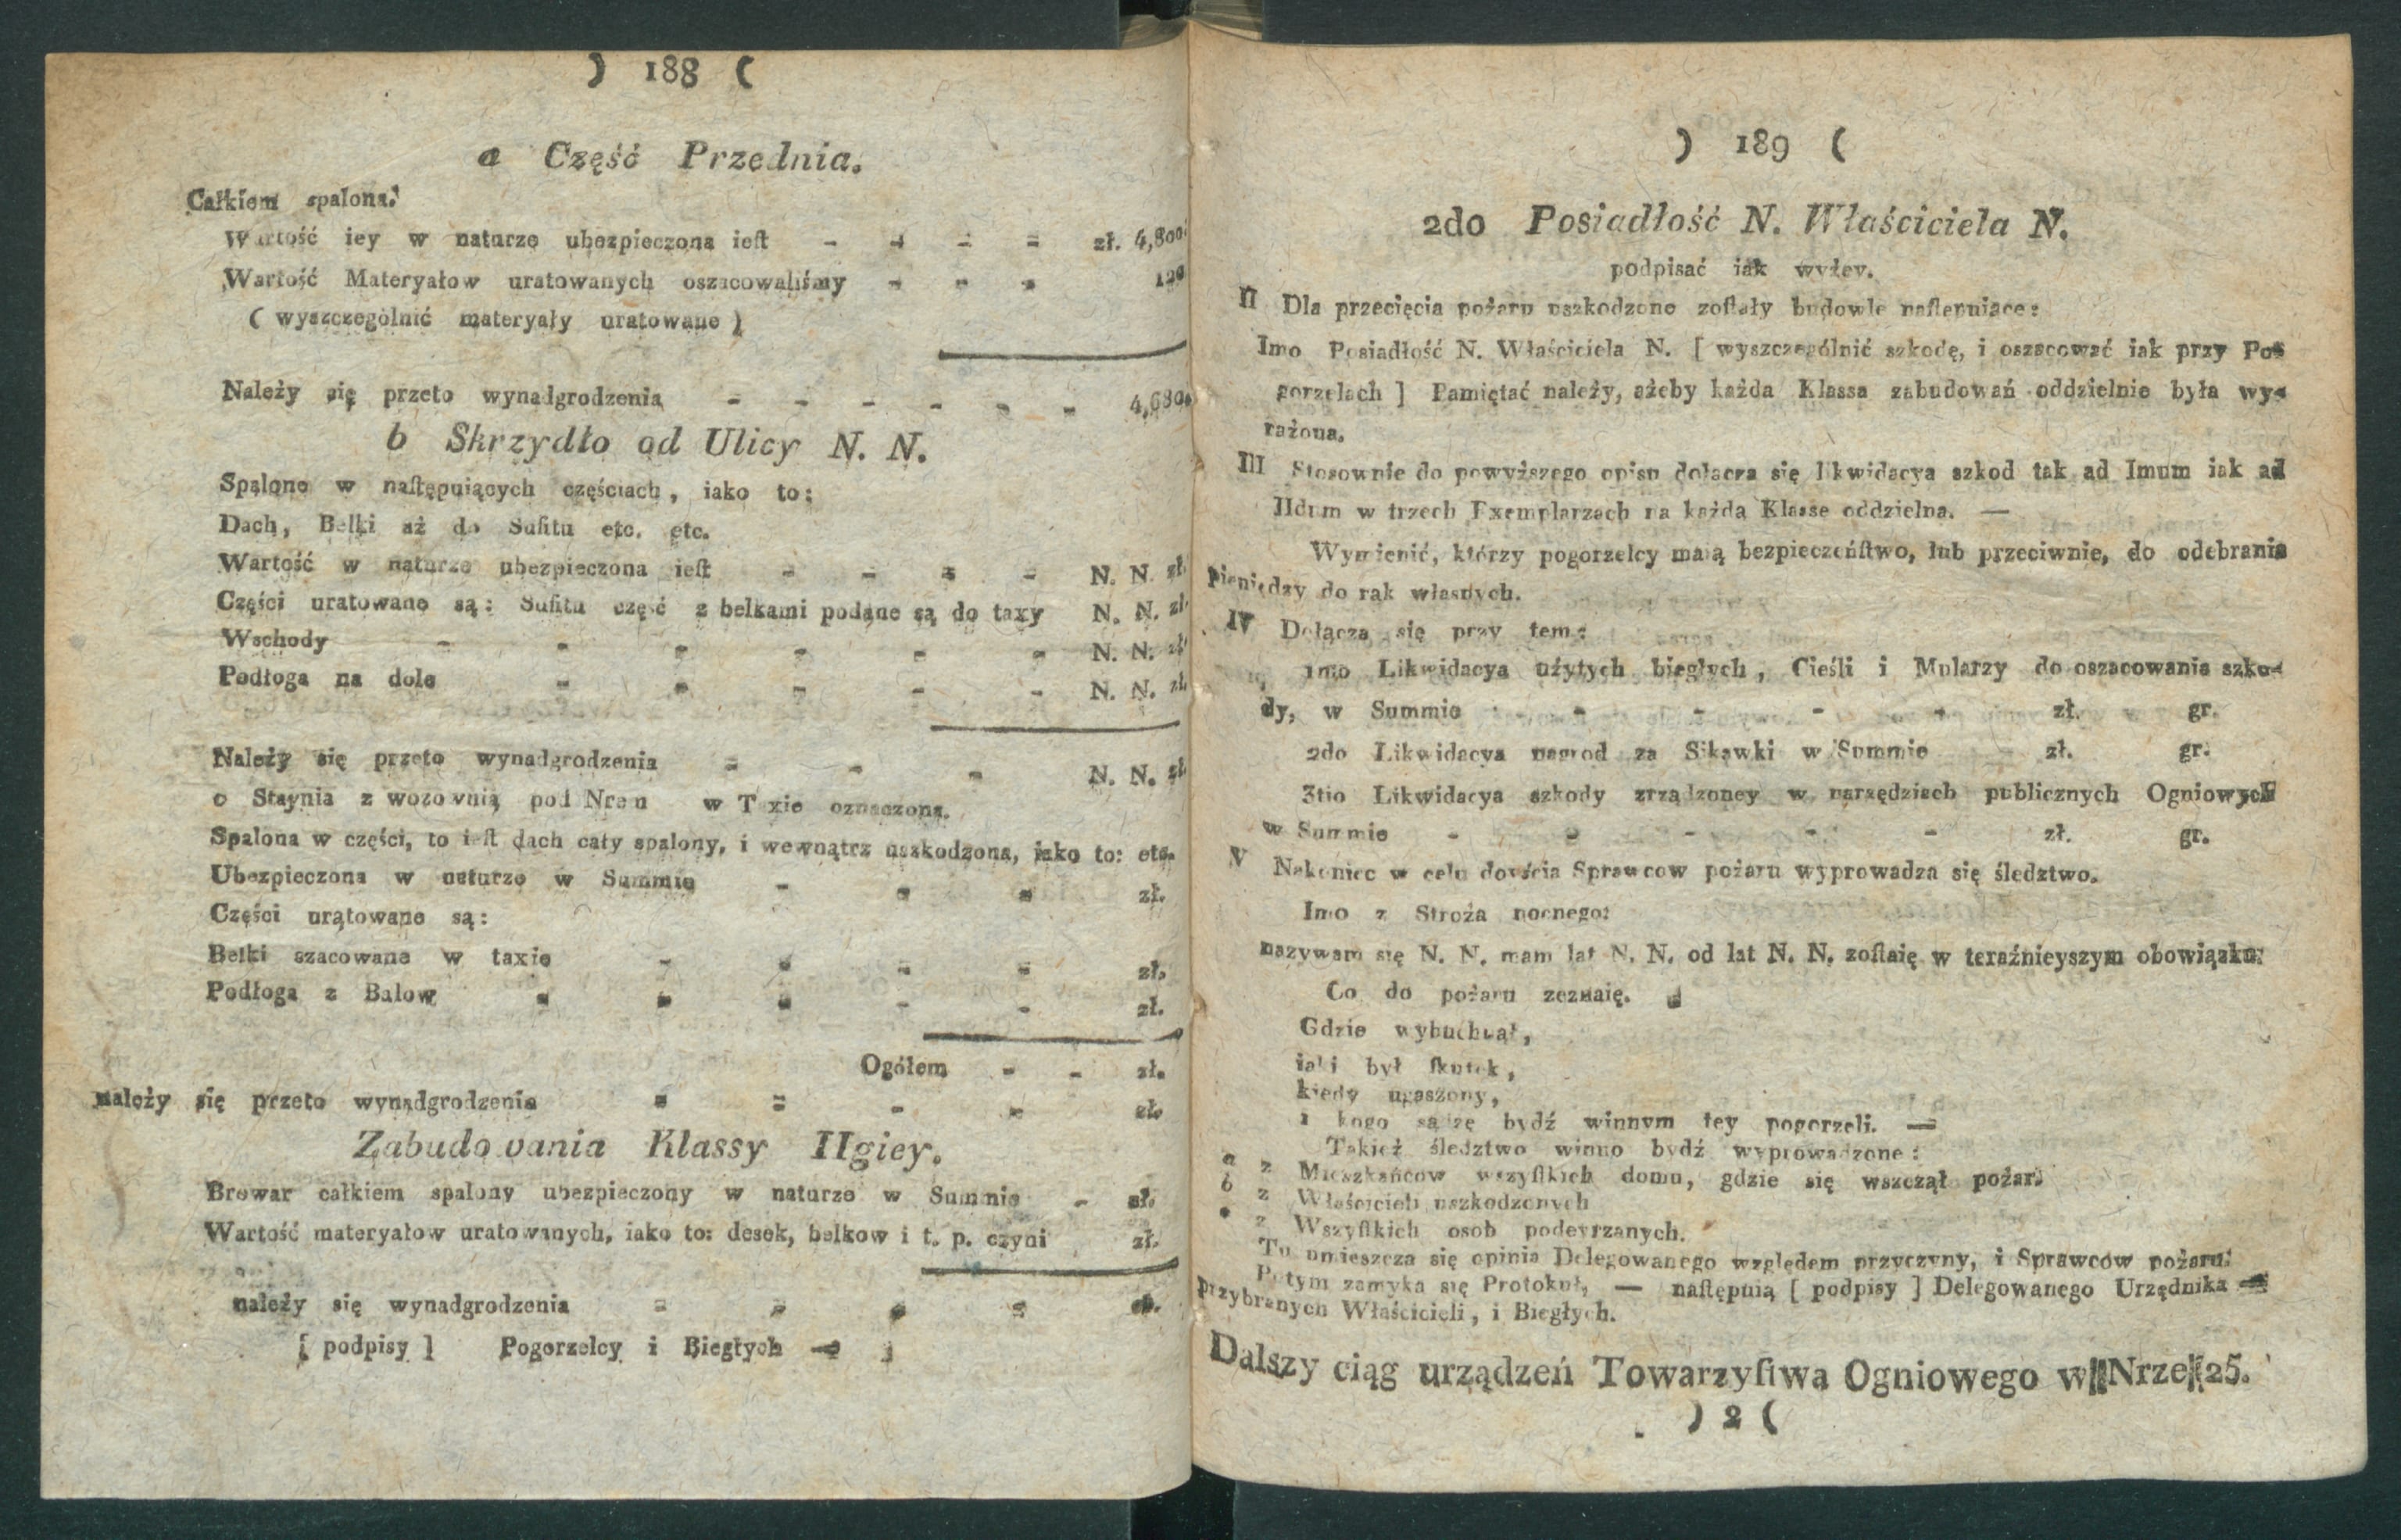 ) 188 (
a Część Przednia.
Całkiem spalona.
Wartość iey w naturze ubezpieczona ieſt - - - - zł. 4,800
Wartość Materyałow uratowanych oszacowaliśmy - - - 120
( wyszczególnić materyały uratowane )
Należy się przeto wynadgrodzenia - - - - - - 4,680.
b Skrzydło od Ulicy N. N.
Spalone w naſtępuiących częściach, iako to:
Dach, Belki aż do Sufitu etc. etc.
Wartość w naturze ubezpieczona ieſt - - - - N. N. zł.
Części uratowane są: Sufitu część z belkami podane są do taxy N. N. zł.
Wschody - - - - - - N. N. zł.
Podłoga na dole - - - - - N. N. zł.
Należy się przeto wynadgrodzenia - - - N. N. zł.
c Staynia z wozownią pod Nrem w Taxie oznaczona.
Spalona w części, to ieſt dach cały spalony, i wewnątrz uszkodzona, iako to: etc.
Ubezpieczona w naturze w Summie - - - zł.
Części urątowane są:
Belki szacowane w taxie - - - - zł.
Podłoga z Balow - - - - - zł.
Ogółem - - zł.
należy się przeto wynadgrodzenia - - - - zł.
Zabudowania Klassy IIgiey.
Browar całkiem spalony ubezpieczony w naturze w Summie - zł.
Wartość materyałow uratowanych, iako to: desek, belkow i t. p. czyni zł.
należy się wynadgrodzenia - - - - zł.
[ podpisy ] Pogorzelcy i Biegłych —
) 189 (
2do Posiadłość N. Właściciela N.
podpisać iak wyżey.
II Dla przecięcia pożaru uszkodzone zoſtały budowle naſtępuiące:
Imo Posiadłość N. Właściciela N. [ wyszczególnić szkodę, i oszacować iak przy Po-
gorzelach ] Pamiętać należy, ażeby każda Klassa zabudowań oddzielnie była wy-
rażona.
III Stosownie do powyższego opisu dołącza się likwidacya szkod tak ad Imum iak ad
IIdum w trzech Exemplarzach na każdą Klasse oddzielna. —
Wymienić, którzy pogorzelcy maią bezpieczeńſtwo, lub przeciwnie, do odebrania
pieniędzy do rąk własnych.
IV Dołącza się przy tem:
1mo Likwidacya użytych biegłych, Cieśli i Mularzy do oszacowania szko-
dy, w Summie - - - - zł. gr.
2do Likwidacya nagrod za Sikawki w Summie zł. gr.
3tio Likwidacya szkody zrządzoney w narzędziach publicznych Ogniowych
w Summie - - - - - zł. gr.
V Nakoniec w celu doyścia Sprawcow pożaru wyprowadza się śledztwo.
Imo z Stroża nocnego:
nazywam się N. N. mam lat N. N. od lat N. N. zoſtaię w teraźnieyszym obowiązku:
Co do pożaru zeznaię.
Gdzie wybuchnął,
iaki był ſkutek,
kiedy ugaszony,
i kogo sądzę bydź winnym tey pogorzeli. —
Takież śledztwo winno bydź wyprowadzone:
a z Mieszkańcow wszyſtkich domu, gdzie się wszczął pożar.
b z Właścicieli uszkodzonych
z Wszyſtkich osob podeyrzanych.
Tu umieszcza się opinia Delegowanego względem przyczyny, i Sprawców pożaru.
Potym zamyka się Protokuł, — naſtępuią [ podpisy ] Delegowanego Urzędnika —
przybranych Właścicieli, i Biegłych.
Dalszy ciąg urządzeń Towarzyſtwa Ogniowego w Nrze 25.
) 2 (